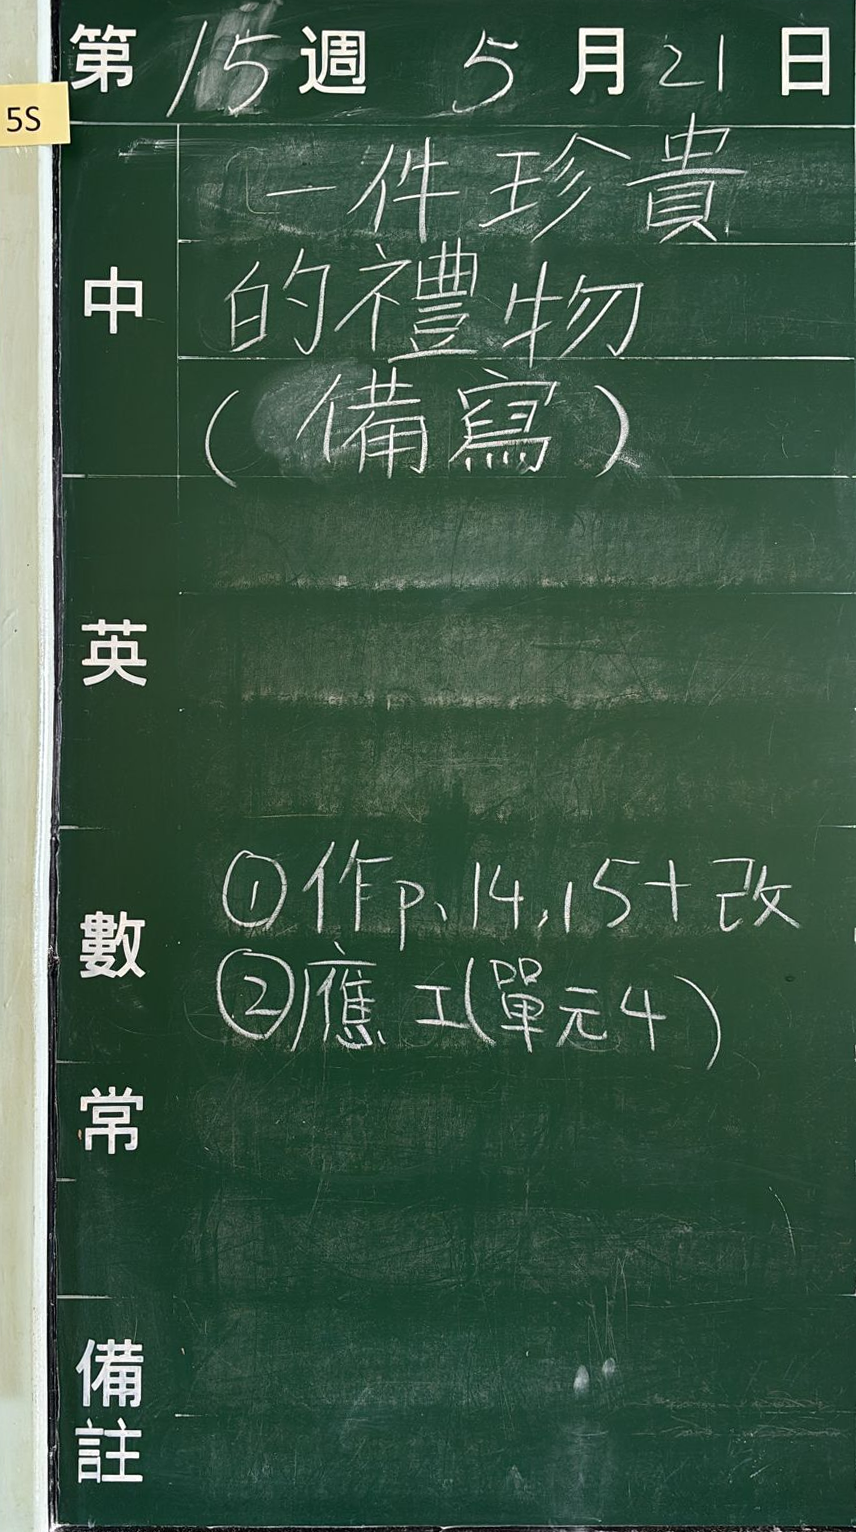 第15週 5月21日
5S
中
一件珍貴
的禮物
(備寫)
英
數
①作p.14,15+改
②應工(單元4)
常
備註